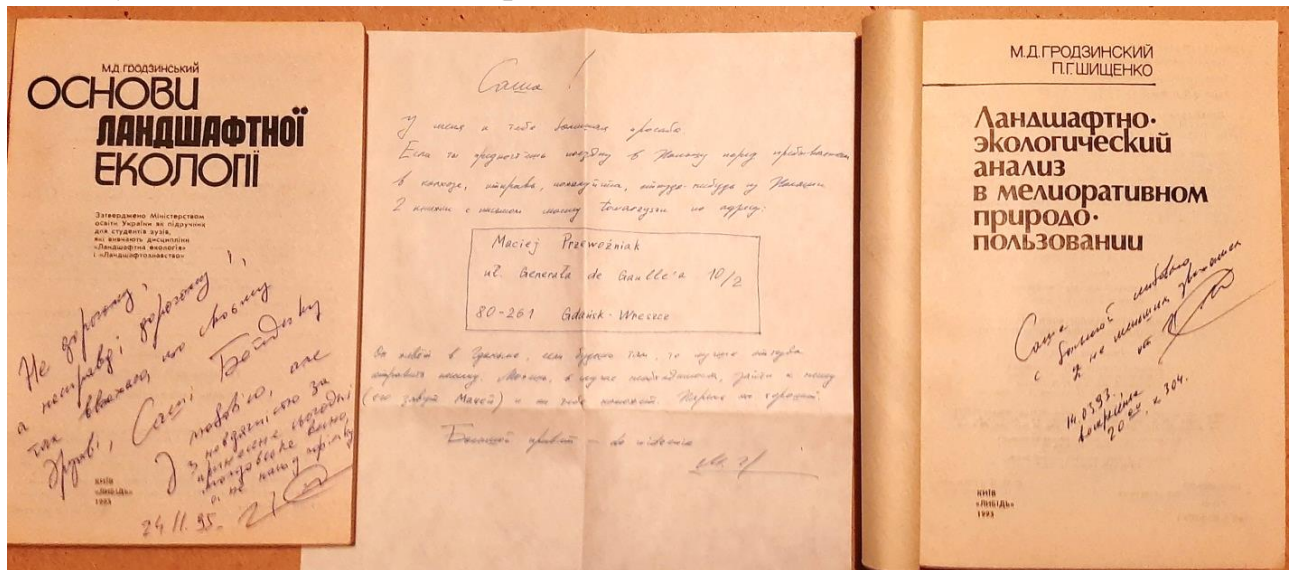 М.Д. ГРОДЗИНСЬКИЙ
ОСНОВИ
ЛАНДШАФТНОЇ
ЕКОЛОГІЇ
Затверджено Міністерством
освіти України як підручник
для студентів вузів,
які вивчають дисципліни
«Ландшафтна екологія»
і «Ландшафтознавство»
Не дорогому,
а насправді дорогому!,
так вважаю, по своєму
Друзяві, Саші
З любов'ю, але
з невдячністю за
принесене сьогодні
молдавське вино,
а не нашу горілку
24.11.95.
КИЇВ
«ЛИБІДЬ»
1993
Саша!
У меня к тебе большая просьба.
Если ты предпочтешь поездку в Польшу перед пребыванием
в колхозе, отправь, пожалуйста, откуда-нибудь из Польши
2 книжки с письмом моему товарищу по адресу:
Maciej Przewoźniak
ul. Generała de Gaulle'a 10/2
80-261 Gdańsk-Wrzeszcz
Он живет в Гданьске, если будешь там, то лучше оттуда
отправить книжку. Можешь, в случае необходимости, зайти к нему
(его зовут Мачей) и он тебе поможет. Парень он хороший.
Большой привет – do widzenia
М. Г
М.Д. ГРОДЗИНСКИЙ
П.Г. ШИЩЕНКО
Ландшафтно-
экологический
анализ
в мелиоративном
природо-
пользовании
Саше
с большой любовью
и не меньшим уважением
от
14.03.93.
воскресенье
20 к. 304.
КИЇВ
«ЛИБІДЬ»
1993